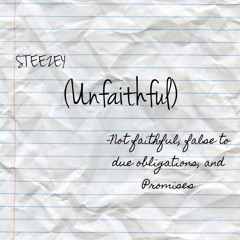 STEEZEY
(Unfaithful)
-Not faithful, false to
due obligations, and
Promises